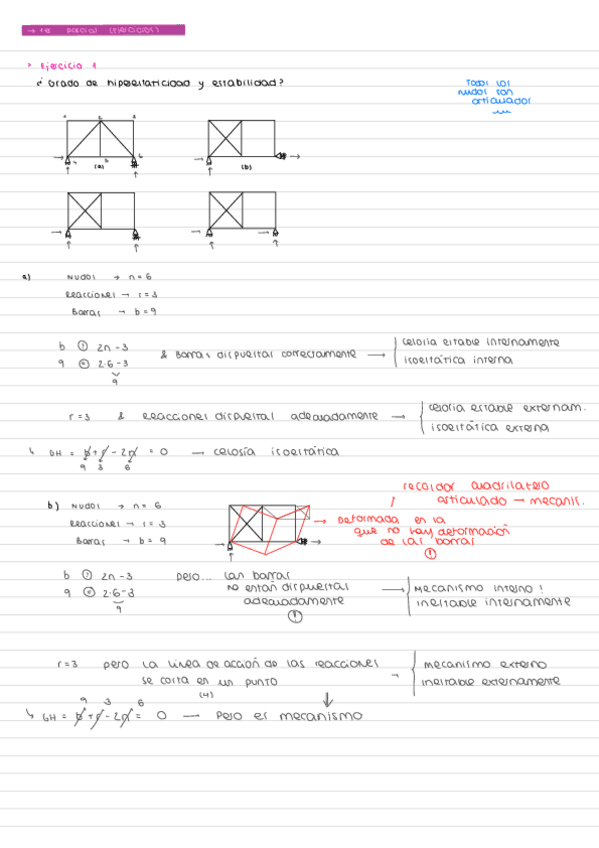 → 1er parcial (Ejercicios)
> Ejercicio 1
¿ Grado de hiperestaticidad y estabilidad?
Todos los
nudos son
articulados
1 2 3
4 5 6
(a) (b)
a) Nudos → n = 6
Reacciones → r = 3
Barras → b = 9
b = 2n - 3
9 = 2·6 - 3
9
& Barras dispuestas correctamente →
celosía estable internamente
isostática interna
r = 3 & Reacciones dispuestas adecuadamente →
celosía estable externam.
isostática externa
↳ GH = b + r - 2n = 0 → celosía isostática
9 3 6
recordar cuadrilatero
articulado → mecanis.
b) Nudos → n = 6
Reacciones → r = 3
Barras → b = 9
→ Deformada en la
que no hay deformación
de las barras
!
b = 2n - 3
9 = 2·6 - 3
9
pero... las barras
no están dispuestas
adecuadamente
!
→ Mecanismo interno !
inestable internamente
r = 3 pero la linea de acción de las reacciones
se corta en un punto
(4)
→ mecanismo externo
inestable externamente
9 3 6
↳ GH = b + r - 2n = 0 — Pero es mecanismo